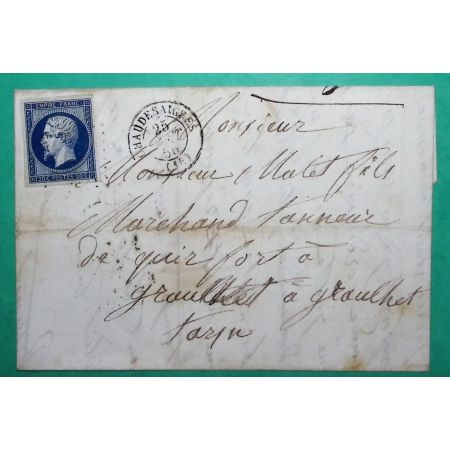 EMPIRE FRANC.
20 C. POSTES 20 C.
CHAUDESAIGUES
25
Monsieur
Monsieur Malet fils
Marchand tanneur
de quir fort à
à graulhet
tarn